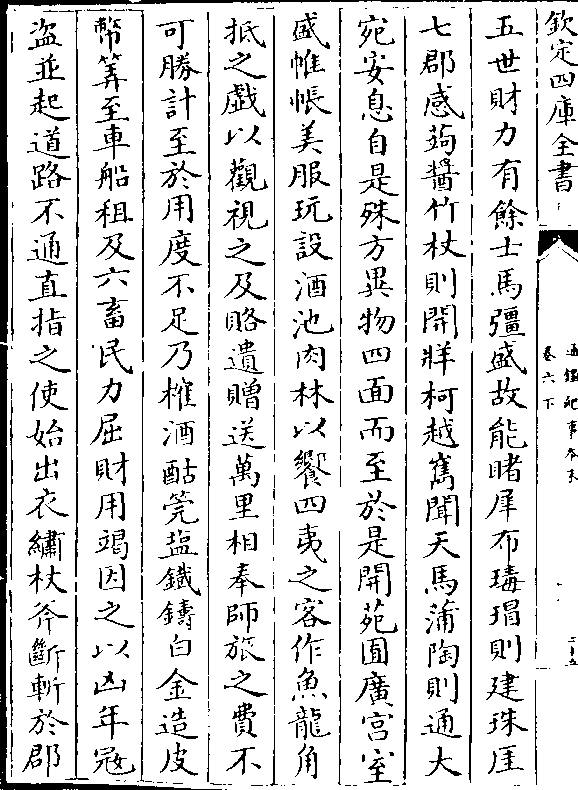 欽定四庫全書
通鑑紀事本末
卷六下
五世財力有餘士馬彊盛故能睹犀布瑇瑁則建珠厓
七郡感蒟醬竹杖則開牂柯越嶲聞天馬蒲陶則通大
宛安息自是殊方異物四面而至於是開苑囿廣宮室
盛帷帳美服玩設酒池肉林以饗四夷之客作魚龍角
抵之戲以觀視之及賂遺贈送萬里相奉師旅之費不
可勝計至於用度不足乃榷酒酤筦盐鐵鑄白金造皮
幣筭至車船租及六畜民力屈財用竭因之以凶年寇
盗並起道路不通直指之使始出衣繡杖斧斷斬於郡